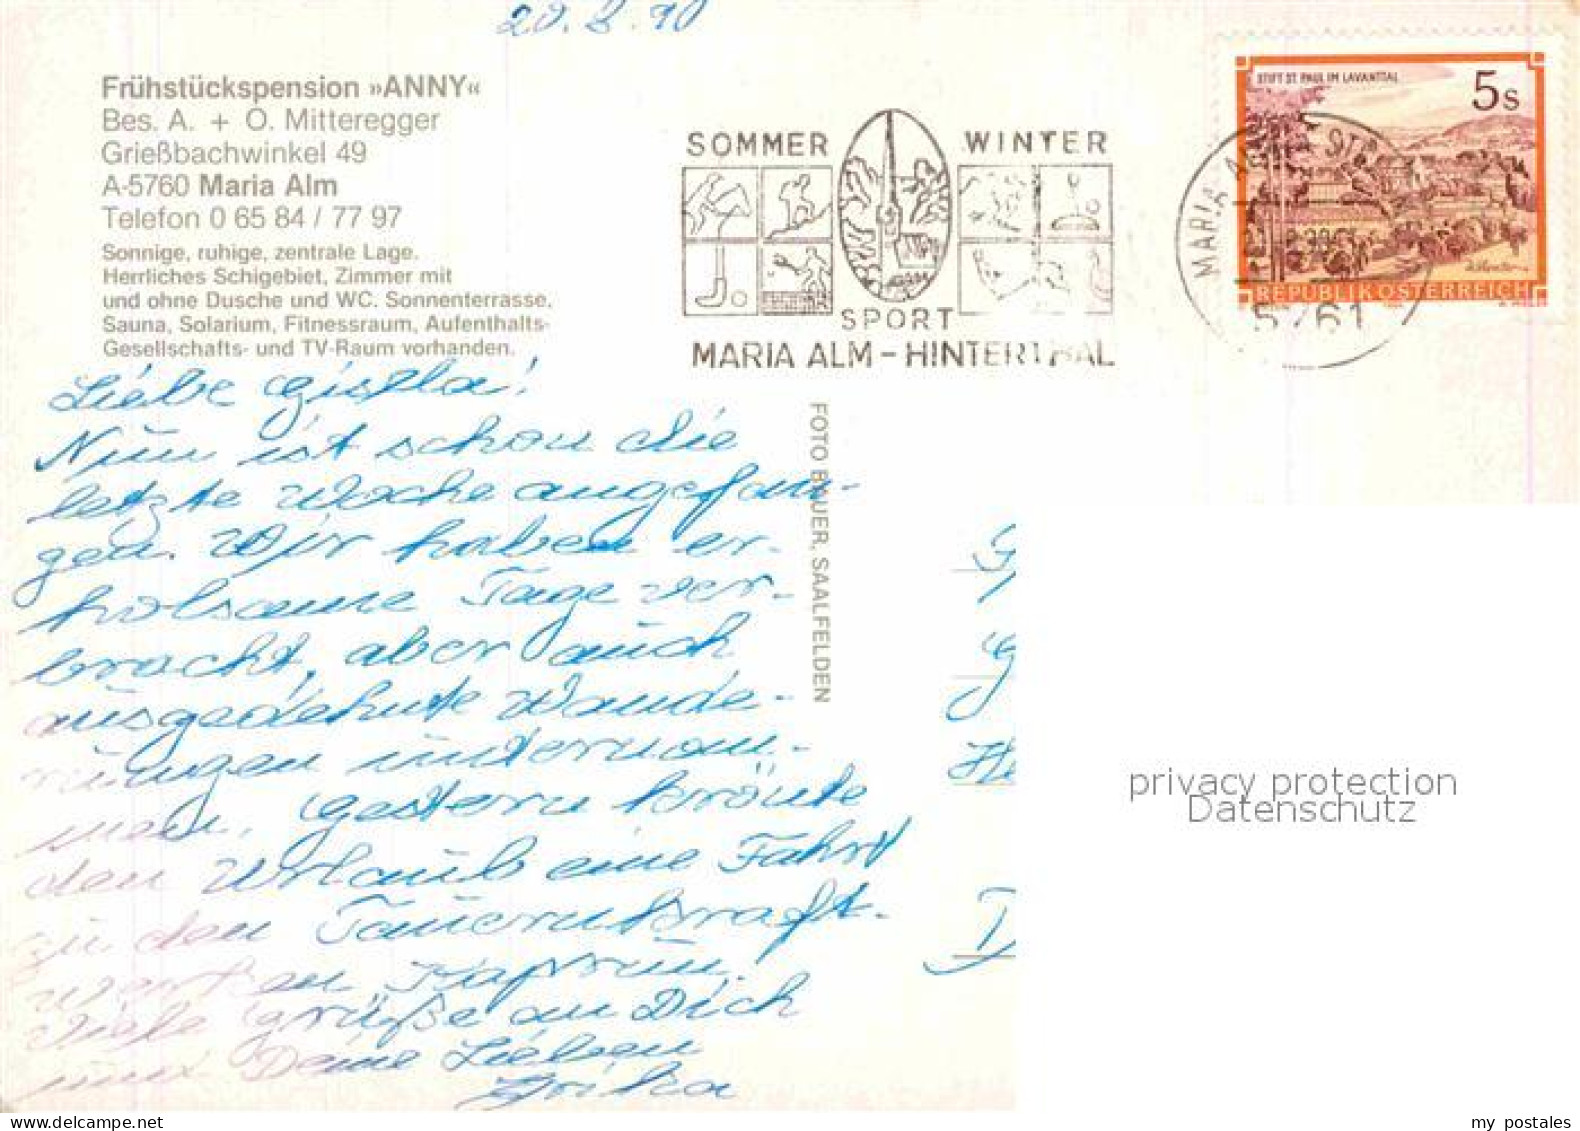 20.8.90
Frühstückspension »ANNY«
Bes. A. + O. Mitteregger
Grießbachwinkel 49
A-5760 Maria Alm
Telefon 0 65 84 / 77 97
Sonnige, ruhige, zentrale Lage.
Herrliches Schigebiet, Zimmer mit
und ohne Dusche und WC. Sonnenterrasse,
Sauna, Solarium, Fitnessraum, Aufenthalts-
Gesellschafts- und TV-Raum vorhanden.
SOMMER WINTER
SPORT
MARIA ALM – HINTERTHAL
STIFT ST. PAUL IM LAVANTTAL
5 S
REPUBLIK ÖSTERREICH
MARIA ALM
5761
Liebe Gisela!
Nun ist schon die
letzte Woche angefan-
gen. Wir haben er-
holsame Tage ver-
bracht, aber auch
ausgedehnte Wande-
rungen unternom-
men. Gestern krönte
den Urlaub eine Fahrt
zu den Tauernkraft-
werken Kaprun.
Viele Grüße an Dich
und Deine Lieben
Erika
FOTO BAUER, SAALFELDEN
privacy protection
Datenschutz
my postales